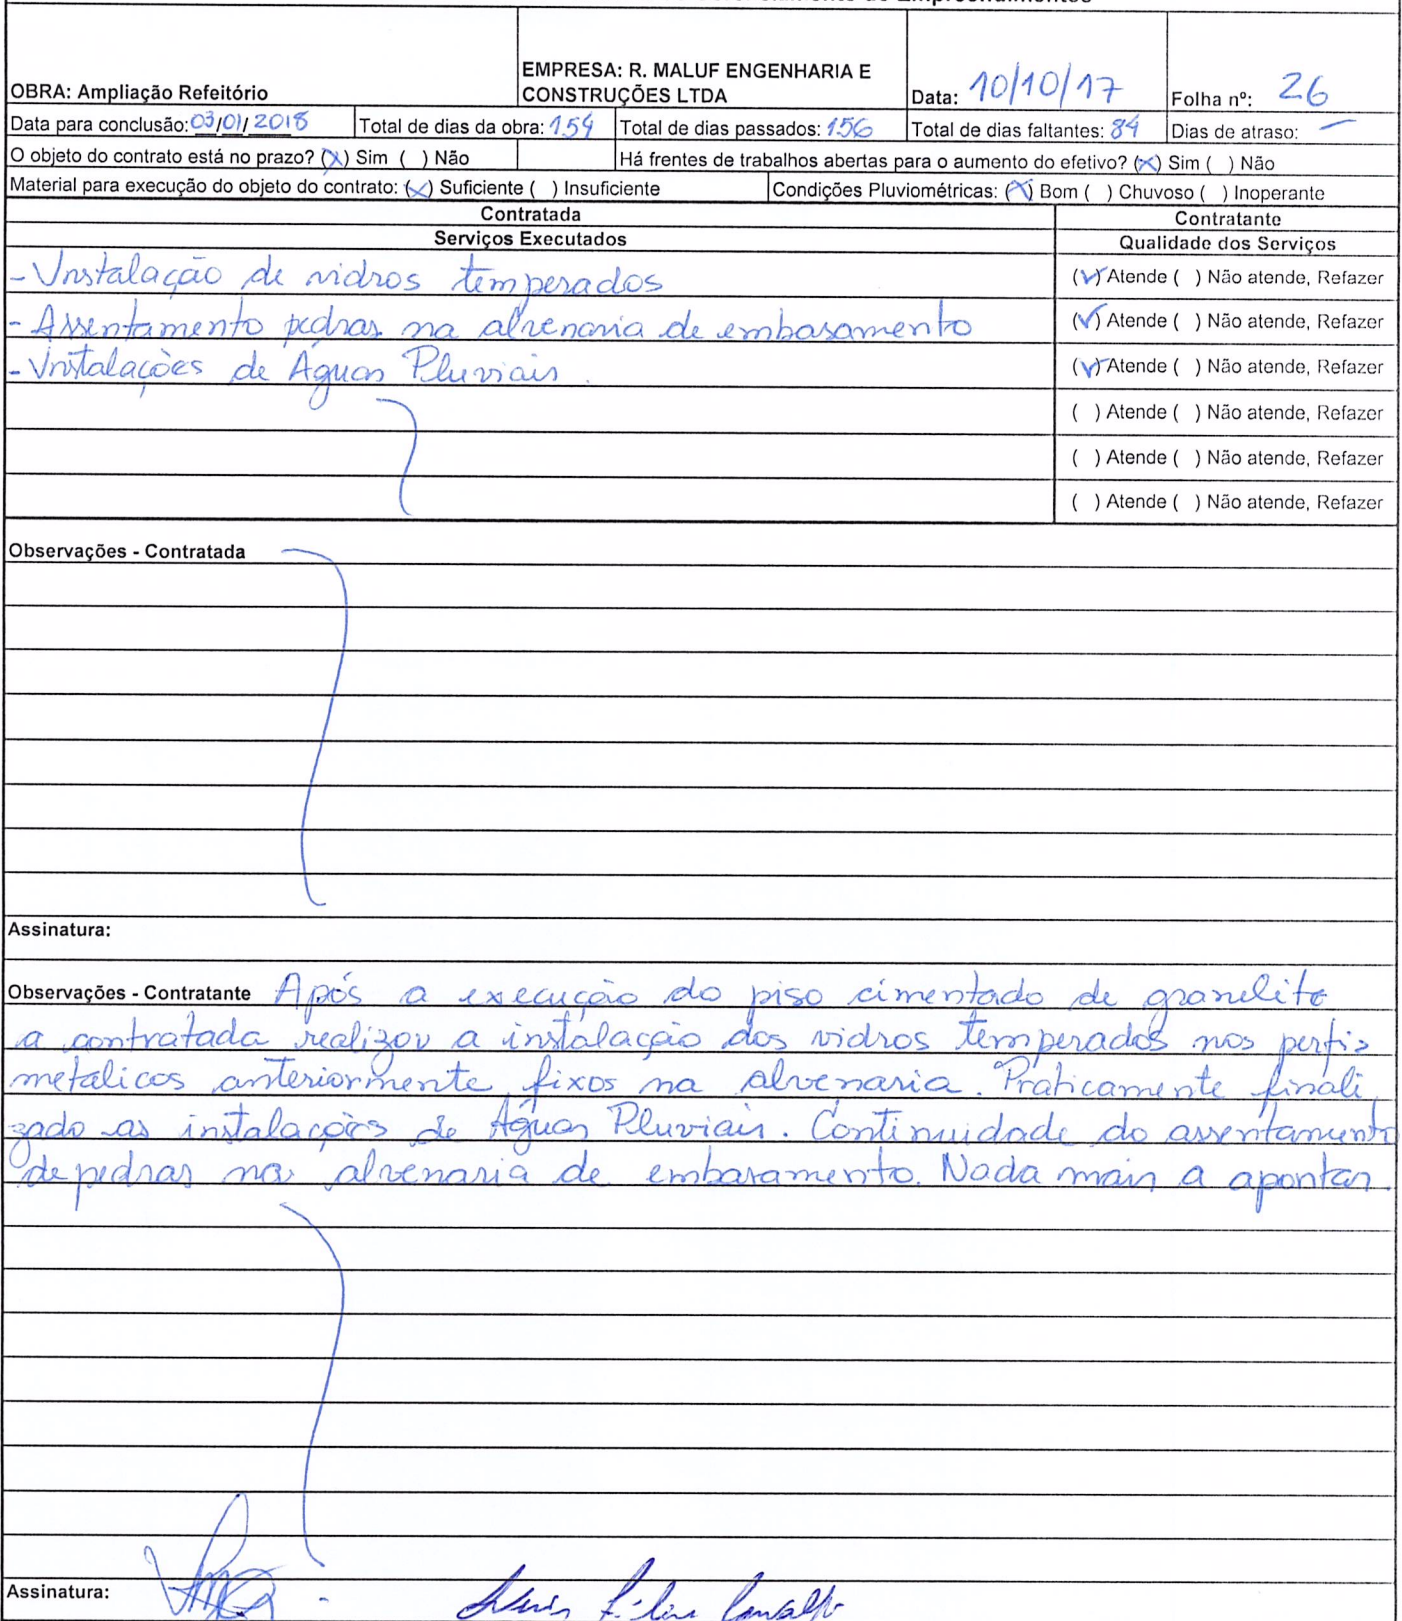 de Empreendimentos
OBRA: Ampliação Refeitório
EMPRESA: R. MALUF ENGENHARIA E
CONSTRUÇÕES LTDA
Data: 10/10/17
Folha nº: 26
Data para conclusão: 03/01/2018
Total de dias da obra: 154
Total de dias passados: 156
Total de dias faltantes: 84
Dias de atraso: —
O objeto do contrato está no prazo? (X) Sim ( ) Não
Há frentes de trabalhos abertas para o aumento do efetivo? (X) Sim ( ) Não
Material para execução do objeto do contrato: (X) Suficiente ( ) Insuficiente
Condições Pluviométricas: (X) Bom ( ) Chuvoso ( ) Inoperante
Contratada
Contratante
Serviços Executados
Qualidade dos Serviços
- Instalação de vidros temperados
(✓) Atende ( ) Não atende, Refazer
- Assentamento pedras na alvenaria de embasamento
(✓) Atende ( ) Não atende, Refazer
- Instalações de Águas Pluviais.
(✓) Atende ( ) Não atende, Refazer
( ) Atende ( ) Não atende, Refazer
( ) Atende ( ) Não atende, Refazer
( ) Atende ( ) Não atende, Refazer
Observações - Contratada
Assinatura:
Observações - Contratante Após a execução do piso cimentado de granelite
a contratada realizou a instalação dos vidros temperados nos perfis
metálicos anteriormente fixos na alvenaria. Praticamente finali
zado as instalações de Águas Pluviais. Continuidade do assentamento
de pedras na alvenaria de embasamento. Nada mais a apontar.
Assinatura: